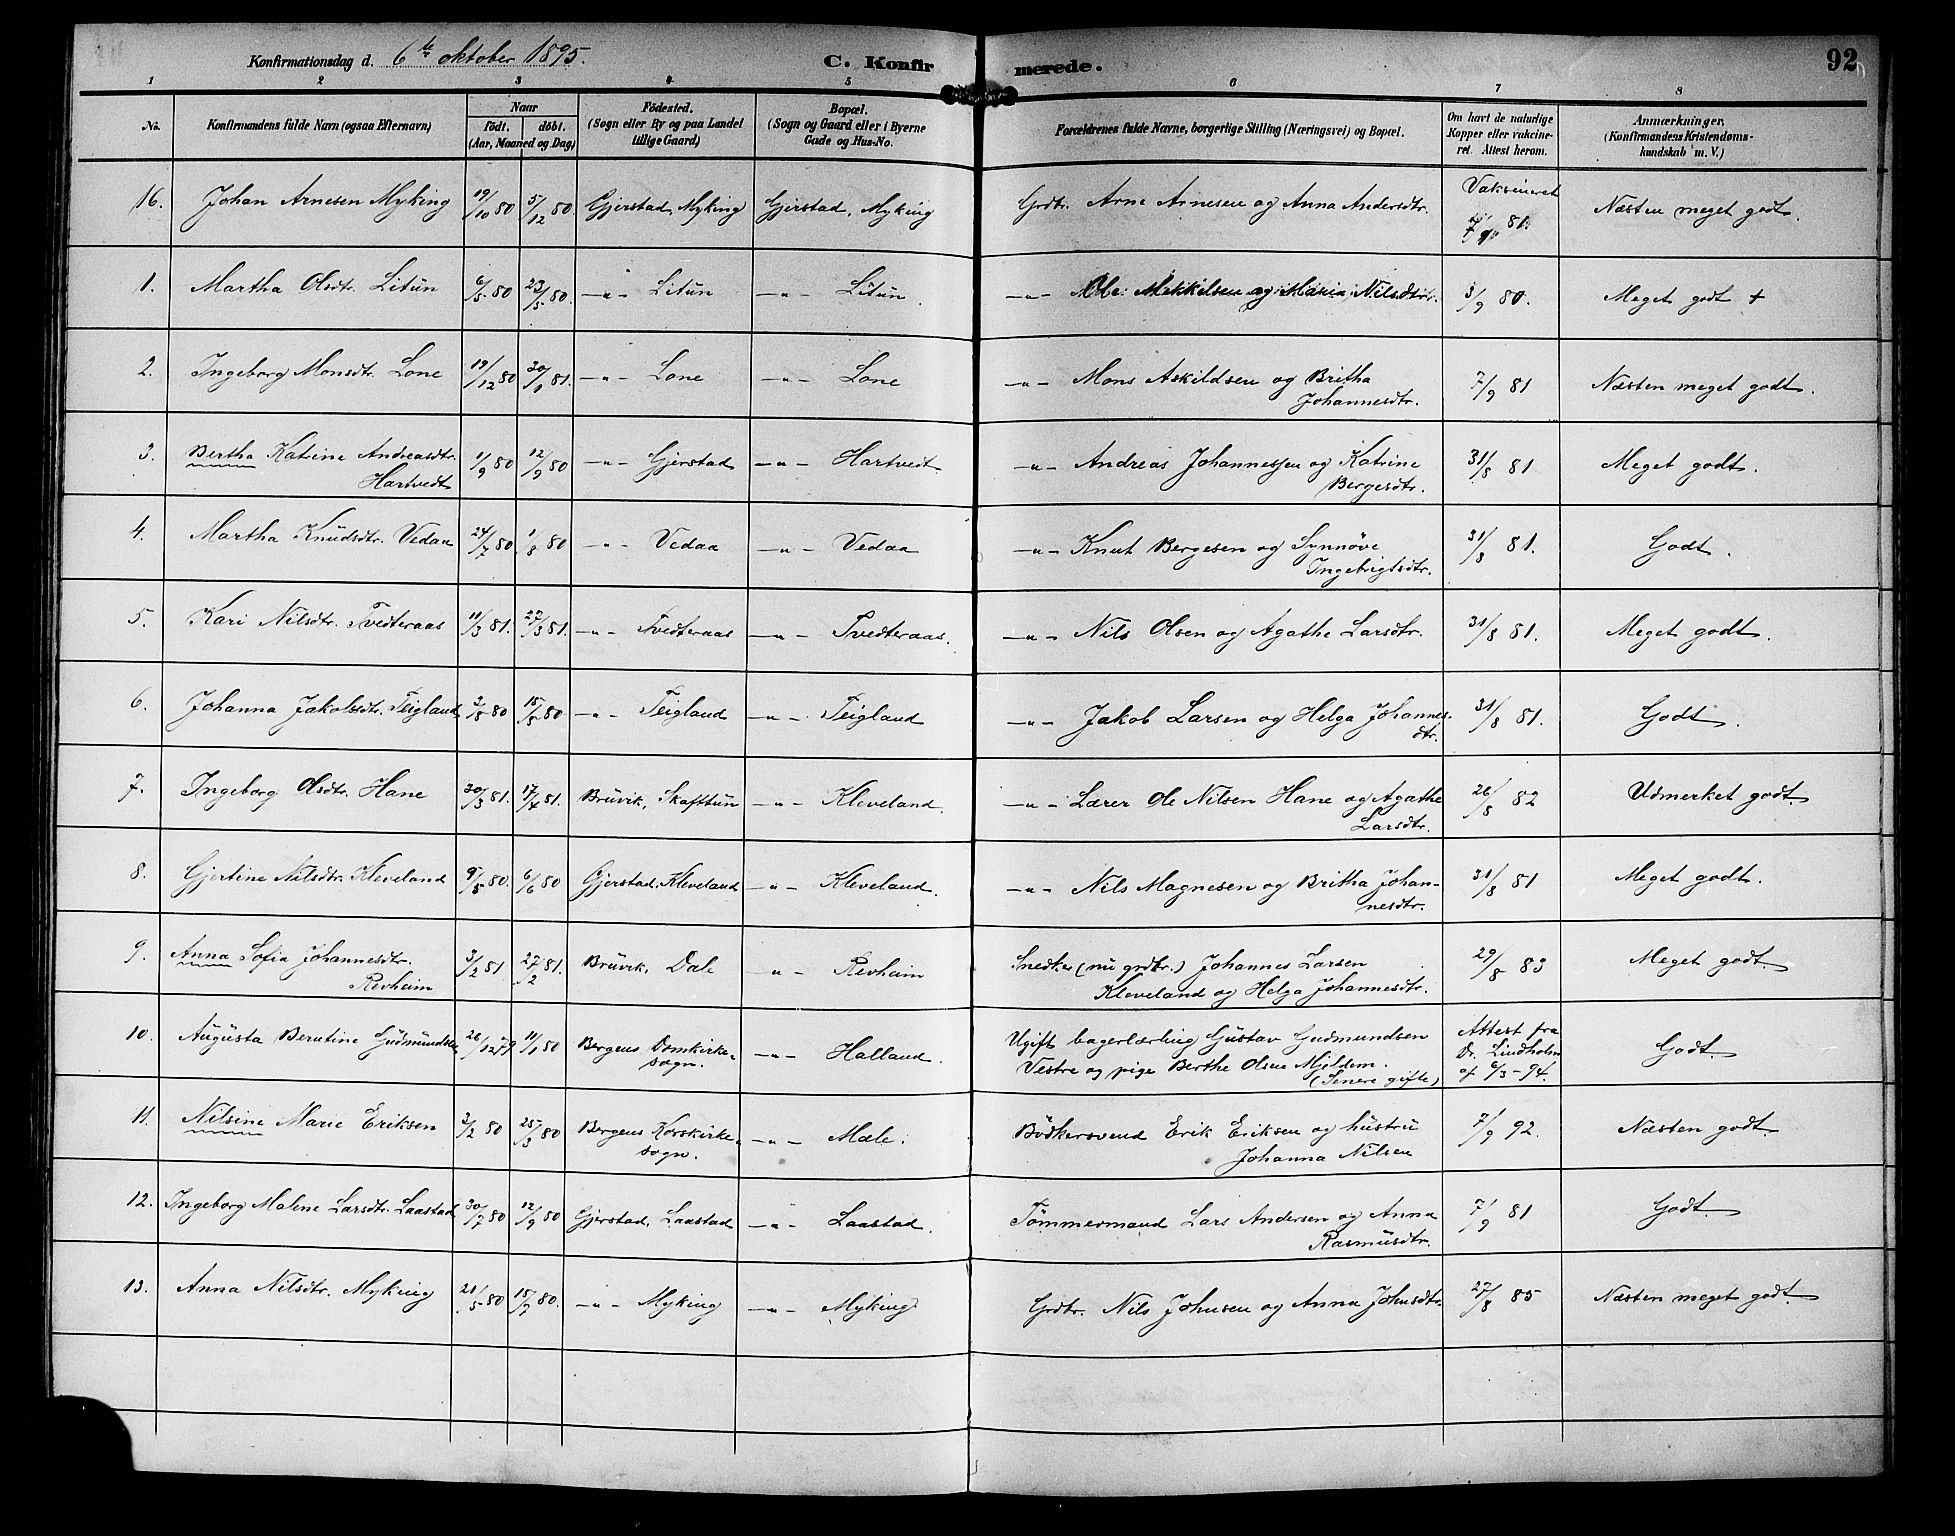 Konfirmationsdag d. 6te oktober 1895. C. Konfirmerede. 92
1 2 3 4 5 6 7 8
No. Konfirmandens fulde Navn (ogsaa Efternavn) Naar født. døbt. (Aar, Maaned og Dag) Fødested. (Sogn eller By og paa Landet tillige Gaard) Bopæl. (Sogn og Gaard eller i Byerne Gade og Hus-No. Forældrenes fulde Navne, borgerlige Stilling (Næringsvei) og Bopæl. Om havt de naturlige Kopper eller vakcineret. Attest herom. Anmærkninger. (Konfirmandens Kristendomskundskab m. V.)
16. Johan Arnesen Myking 19/10 80 5/12 80 Gjerstad, Myking Gjerstad, Myking Grdbr. Arne Arnesen og Anna Andersdtr. Vaksineret 81 Næsten meget godt.
1. Martha Olsdtr. Litun 6/5 80 23/5 80. —"— Litun —"— Litun. —"— Ole Mikkelsen og Maria Nilsdtr. 3/9 80. Meget godt +
2. Ingeborg Monsdtr. Lone 19/12 80 30/1 81. —"— Lone —"— Lone —"— Mons Askildsen og Britha
Johannesdtr. 7/9 81 Næsten meget godt.
3. Bertha Katrine Andreasdtr.
Hartvedt 1/9 80 12/9 80 —"— Gjerstad —"— Hartvedt —"— Andreas Johannessen og Katrine
Bergesdtr. 31/8 81 Meget godt.
4. Martha Knudsdtr. Vedaa 24/7 80 1/8 80 —"— Vedaa —"— Vedaa —"— Knut Bergesen og Synnøve
Ingebrigtsdtr. 31/8 81. Godt.
5. Kari Nilsdtr. Tvedteraas 11/3 81. 27/3 81. —"— Tvedteraas —"— Tvedteraas. —"— Nils Olsen og Agathe Larsdtr. 31/8 81. Meget godt.
6. Johanna Jakobsdtr. Teigland 3/8 80 15/8 80 —"— Teigland —"— Teigland —"— Jakob Larsen og Helga Johannes-
dtr. 31/8 81. Godt.
7. Ingeborg Olsdtr. Hane 30/3 81. 17/4 81. Bruvik, Skafttun —"— Kleveland. —"— Lærer Ole Nilsen Hane og Agathe
Larsdtr. 26/8 82 Udmerket godt.
8. Gjertine Nilsdtr. Kleveland 9/5 80. 6/6 80 Gjerstad, Kleveland —"— Kleveland. —"— Nils Magnesen og Britha Johan-
nesdtr. 31/8 81 Meget godt.
9. Anna Sofia Johannesdtr.
Revheim 3/2 81 27/2 81. Bruvik, Dale —"— Revheim Snedker (nu grdbr.) Johannes Larsen
Kleveland og Helga Johannesdtr. 29/8 83 Meget godt.
10. Augusta Berntine Gudmundsen 26/12 79 11/1 80 Bergens Domkirke-
sogn. —"— Halland. Ugift bagerlærling Gustav Gudmundsen
Vestre og pige Berthe Olsen Mjeldem.
(Senere gifte) Attest fra
Dr. Lindholm
af 6/3-94. Godt.
11. Nilsine Marie Eriksen 3/2 80 25/3 80 Bergens Korskirke-
sogn. —"— Mæle. Bødkersvend Erik Eriksen og hustru
Johanna Nilsen 7/9 92. Næsten godt.
12. Ingeborg Malene Larsdtr. Laastad 30/7 80 12/9 80 Gjerstad, Laastad —"— Laastad. Tømmermand Lars Andersen og Anna
Rasmusdtr. 7/9 81 Godt.
13. Anna Nilsdtr. Myking 21/5 80 18/7 80. —"— Myking —"— Myking Grdbr. Nils Johnsen og Anna Johnsdtr. 27/8 85 Næsten meget godt.